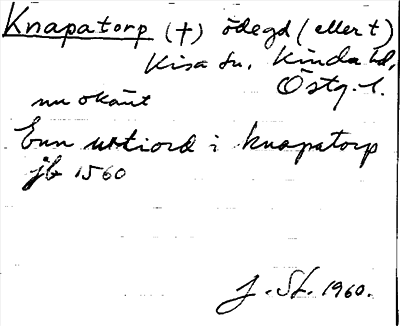 Knapatorp (†) ödegd (eller t)
Kisa sn. Kinda hd,
Östg. l.
nu okänt
Enn utiord i knapatorp
jb 1560
J. St. 1960.